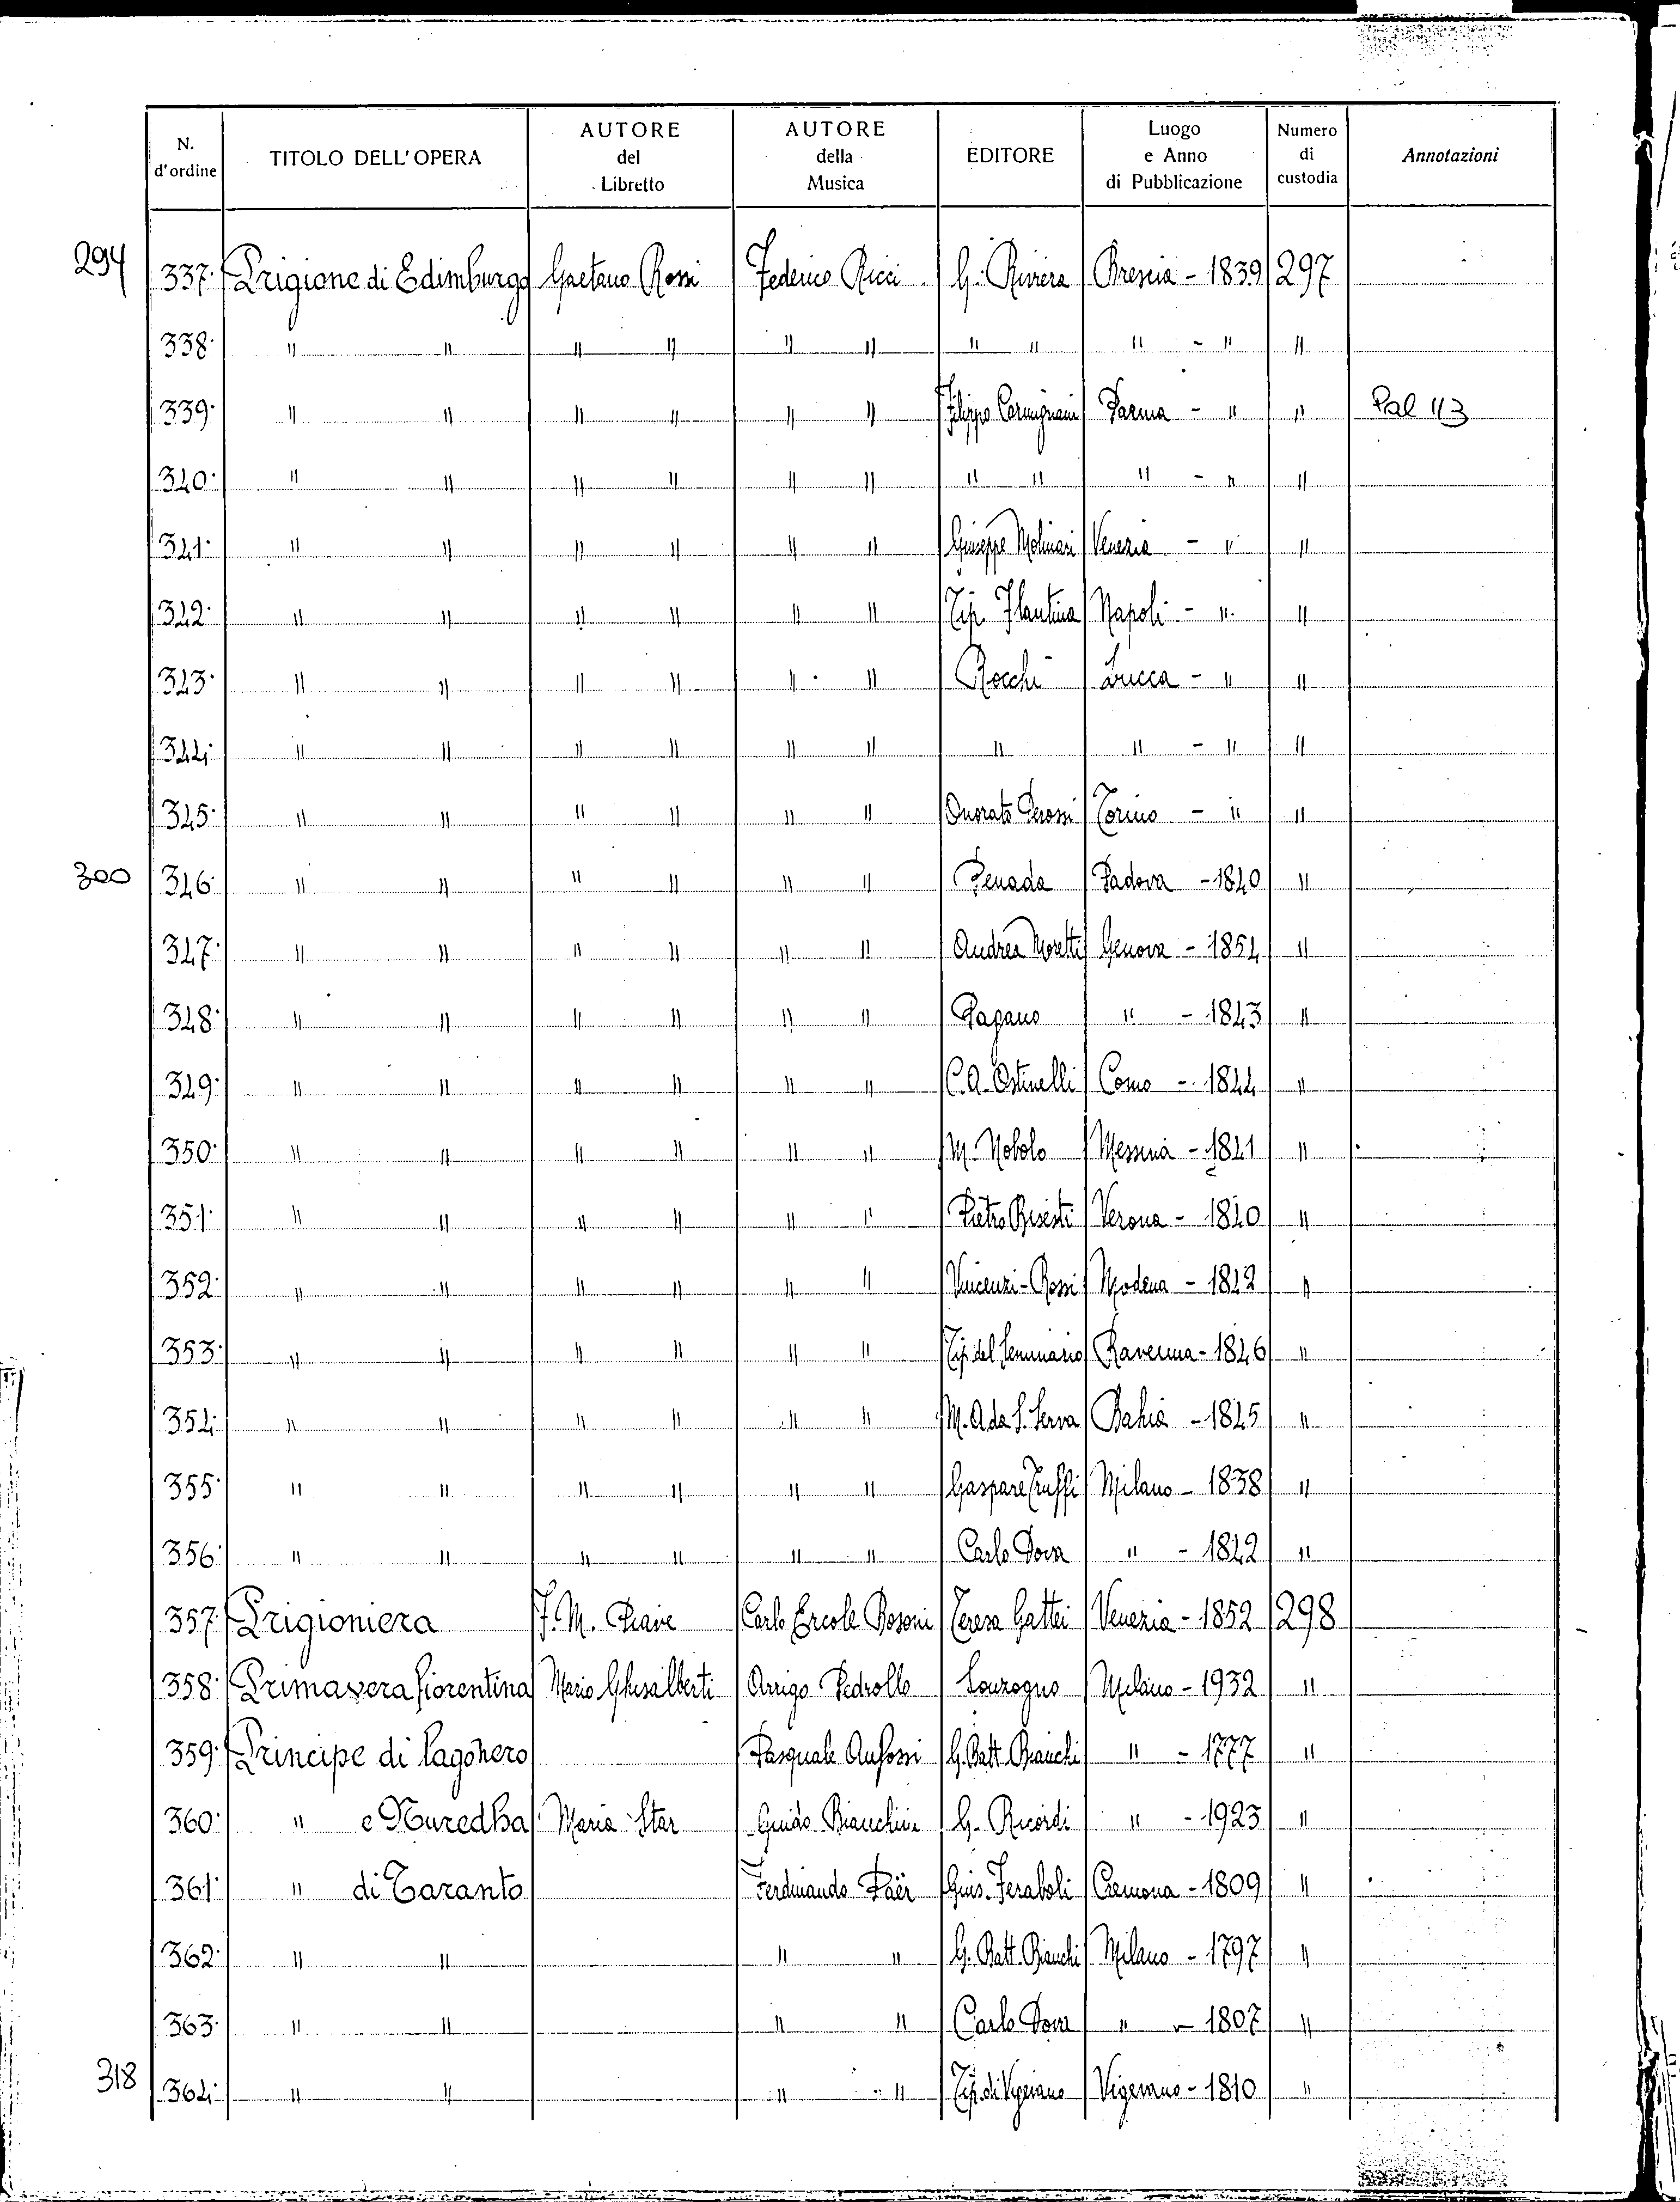 N. d'ordine | TITOLO DELL'OPERA | AUTORE del Libretto | AUTORE della Musica | EDITORE | Luogo e Anno di Pubblicazione | Numero di custodia | Annotazioni
294 337. Prigione di Edimburgo Gaetano Rossi Federico Ricci G. Riviera Brescia - 1839 297
338. " " " " " " " " " - " "
339. " " " " " " Filippo Carmignani Parma - " " Pal 113
340. " " " " " " " " " - " "
341. " " " " " " Giuseppe Molinari Venezia - " "
342. " " " " " " Tip. Flautina Napoli - " "
343. " " " " " " Rocchi Lucca - " "
344. " " " " " " " " - " "
345. " " " " " " Onorato Derossi Torino - " "
300 346. " " " " " " Penada Padova - 1840 "
347. " " " " " " Andrea Moretti Genova - 1854 "
348. " " " " " " Pagano " - 1843 "
349. " " " " " " C. A. Ostinelli Como - 1844 "
350. " " " " " " M. Nobolo Messina - 1841 "
351. " " " " " " Pietro Bisesti Verona - 1840 "
352. " " " " " " Vincenzi - Rossi Modena - 1842 "
353. " " " " " " Tip. del Seminario Ravenna - 1846 "
354. " " " " " " M. A. da S. Serva Bahia - 1845 "
355. " " " " " " Gaspare Truffi Milano - 1838 "
356. " " " " " " Carlo Dova " - 1842 "
357. Prigioniera F. M. Piave Carlo Ercole Bosoni Teresa Gattei Venezia - 1852 298
358. Primavera fiorentina Mario Ghisalberti Arrigo Pedrollo Sonzogno Milano - 1932 "
359. Principe di Lagonero Pasquale Anfossi G. Batt. Bianchi " - 1777 "
360. " e Nuredha Maria Star Guido Bianchini G. Ricordi " - 1923 "
361. " di Taranto Ferdinando Paër Gius. Feraboli Cremona - 1809 "
362. " " " " G. Batt. Bianchi Milano - 1797 "
363. " " " " Carlo Dova " - 1807 "
318 364. " " " " Tip. di Vigevano Vigevano - 1810 "